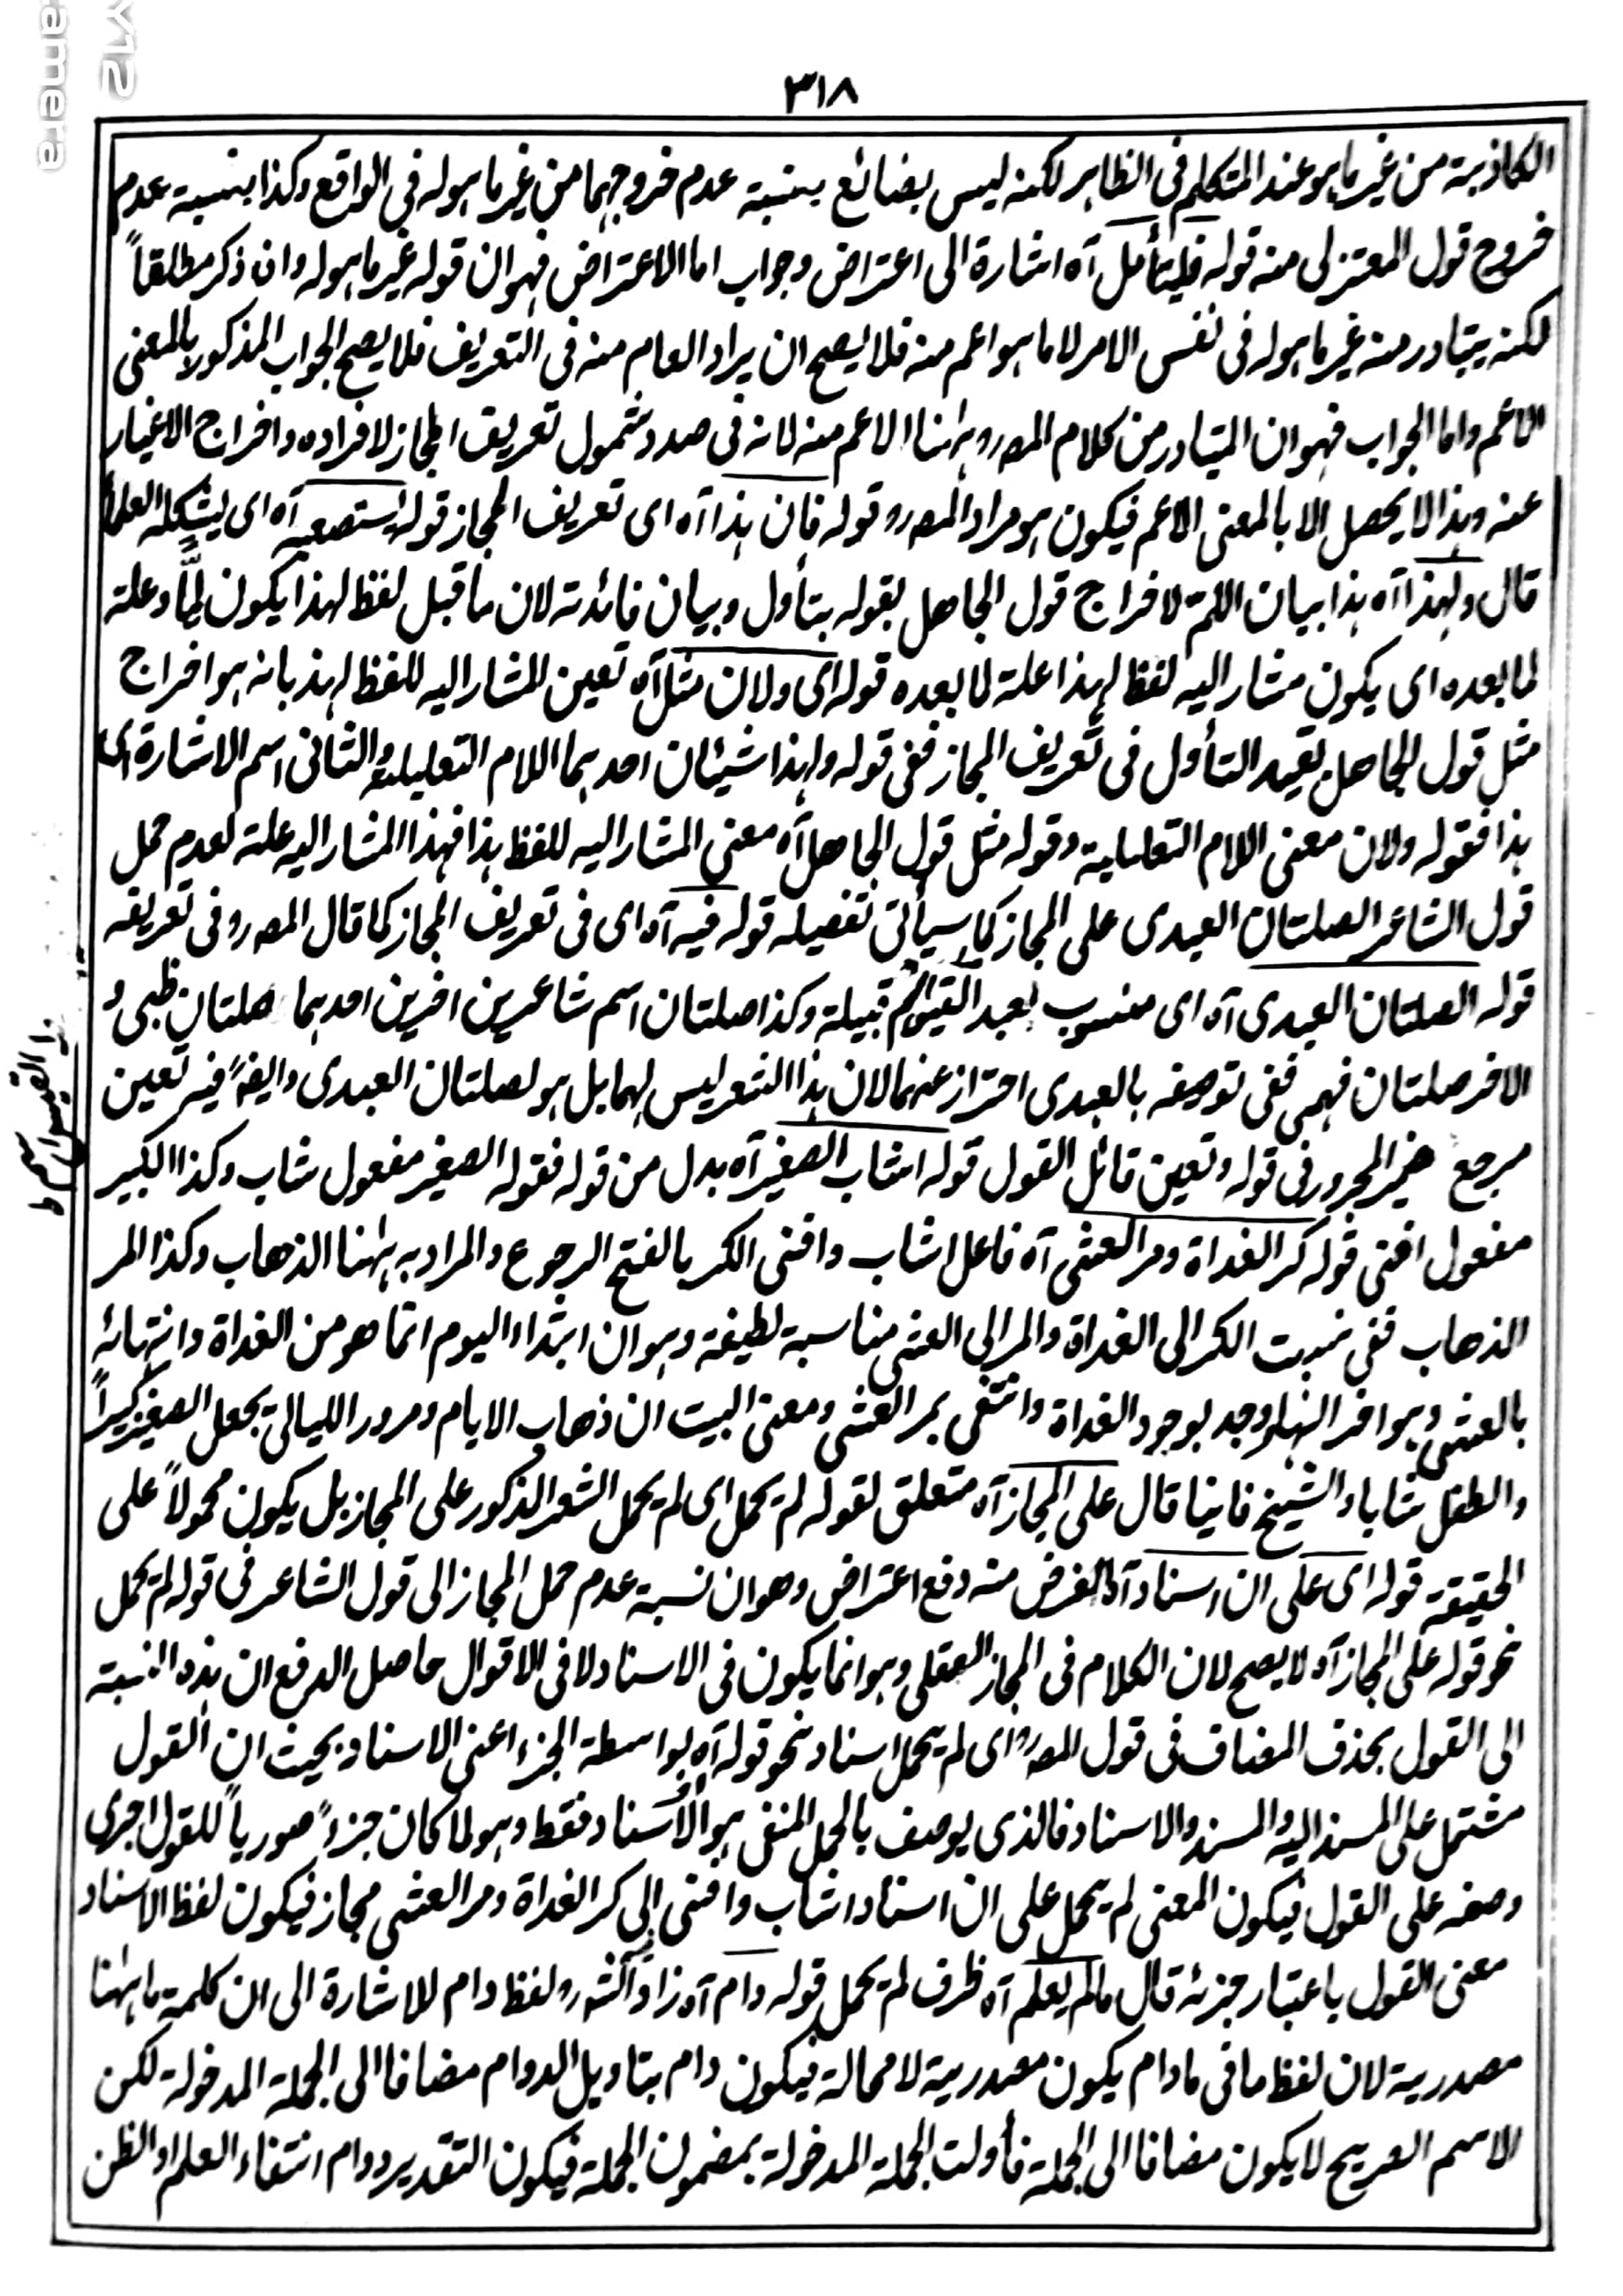 ٣١٨
الكاذبة من غير ما هو عند المتكلم فى الظاهر لكنه ليس بضائع بنسبة عدم خروجهما من غير ما هو له فى الواقع وكذا بنسبة عدم
خروج قول المعتزلى منه قوله فليتأمل آه اشارة الى اعتراض وجواب اما الاعتراض فهو ان قوله غير ما هو له وان ذكر مطلقاً
لكنه يتبادر منه غير ما هو له فى نفس الامر لا ما هو اعم منه فلا يصح ان يراد العام منه فى التعريف فلا يصح الجواب المذكور بالمعنى
الاعم واما الجواب فهو ان المتبادر من كلام المصرو ههنا الاعم منه لانه فى صدد شمول تعريف المجاز لافراده واخراج الاغيار
عنه وهذا لا يحصل الا بالمعنى الاعم فيكون هو مراد المصرو قوله فان هذا آه اى تعريف المجاز قوله استصعبه آه اى يشكله العلماء
قال ولهذا آه هذا بيان اللم لاخراج قول الجاهل بقوله بتأول وبيان فائدته لان ما قبل لفظ لهذا يكون لِمّاً وعلة
لما بعده اى يكون مشار اليه لفظ لهذا علة لما بعده قوله اى ولان مثل آه تعين المشار اليه للفظ لهذا بانه هو اخراج
مثل قول الجاهل بقيد التأول فى تعريف المجاز ففى قوله ولهذا شيئان احدهما اللام التعليلية والثانى اسم الاشارة اى
هذا فقوله ولان معنى اللام التعليلية وقوله مثل قول الجاهل آه معنى المشار اليه للفظ هذا فهذا المشار اليه علة لعدم حمل
قول الشاعر الصلتان العبدى على المجاز كما سيأتى تفصيله قوله فيه آه اى فى تعريف المجاز كما قال المصرو فى تعريفه
قوله الصلتان العبدى آه اى منسوب بعبد القيس اسم قبيلة وكذا صلتان اسم شاعرين اخرين احدهما صلتان ظبى و
الاخر صلتان فهمى ففى توصيفه بالعبدى احتراز عنهما لان هذا الشعر ليس لهما بل هو لصلتان العبدى وايضاً فيه تعين
مرجع ضمير المجرور فى قوله وتعين قائل القول قوله اشاب الصغير آه بدل من قوله فقوله الصغير مفعول شاب وكذا الكبير
مفعول افنى قوله كر الغداة ومر العشى آه فاعل اشاب وافنى الكر بالفتح الرجوع والمراد به ههنا الذهاب وكذا المر
الذهاب ففى نسبت الكر الى الغداة والمر الى العشى مناسبة لطيفة وهو ان ابتداء اليوم انما هو من الغداة وانتهائه
بالعشى وهو اخر النهار وجد بوجود الغداة وانتفى بمر العشى ومعنى البيت ان ذهاب الايام ومرور الليالى يجعل الصغير كبيراً
والطفل شابا والشيخ فانيا قال على المجاز آه متعلق لقوله لم يحمل اى لم يحمل الشعر المذكور على المجاز بل يكون محمولاً على
الحقيقة قوله اى على ان اسناد آه الغرض منه دفع اعتراض وهو ان نسبة عدم حمل المجاز الى قول الشاعر فى قوله لم يحمل
نحو قوله على المجاز آه لا يصح لان الكلام فى المجاز العقلى وهو انما يكون فى الاسناد لا فى الاقوال حاصل الدفع ان هذه النسبة
الى القول بحذف المضاف فى قول المصرو اى لم يحمل اسناد نحو قوله آه بواسطة الجزء اعنى الاسناد بحيث ان القول
مشتمل على المسند اليه والمسند والاسناد فالذى يوصف بالحمل المنفى هو الأسناد فقط وهو لما كان جزءً صورياً للقول اجرى
وصفه على القول فيكون المعنى لم يحمل على ان اسناد اشاب وافنى الى كر الغداة ومر العشى مجاز فيكون لفظ الاسناد
معنى القول باعتبار جزئه قال مالم يعلم آه ظرف لم يحمل قوله دام آه زاد الشر و لفظ دام للاشارة الى ان كلمة ما ههنا
مصدرية لان لفظ ما فى مادام يكون مصدرية لا محالة فيكون دام بتاويل الدوام مضافا الى الجملة المدخولة لكن
الاسم الصريح لا يكون مضافا الى الجملة فأولت الجملة المدخولة بمضمون الجملة فيكون التقدير دوام انتفاء العلم او الظن
Y12
amera